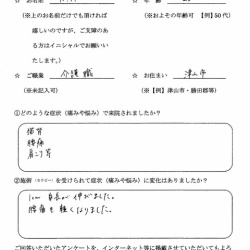 ※上のお名前だけでも頂ければ
嬉しいのですが、ご支障のあ
る方はイニシャルでお願いい
たします。)
(※およその年齢可 【例】50代)
☆ ご職業 介護職 ☆ お住まい 津山市
(※未記入可) (※【例】津山市・勝田郡等)
①どのような症状(痛みや悩み)で来院されましたか?
猫背
腰痛
肩こり等
②施術を受けられて症状(痛みや悩み)に変化はありましたか?
1cm 身長が伸びました。
腰痛も軽くなりました。
ご回答いただいたアンケートを、インターネット等に掲載させていただいてもよ